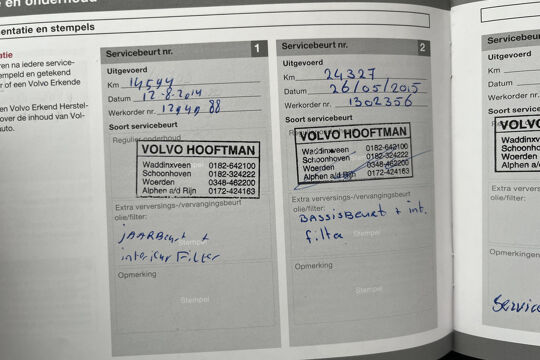 en onderhoud
entatie en stempels
atie
ren na iedere service-
empeld en getekend
r of een Volvo Erkende
en Volvo Erkend Herstel-
over de inhoud van Vol-
auto.
Servicebeurt nr. 1
Uitgevoerd
Km 14544
Datum 12-8-2014
Werkorder nr.
Soort servicebeurt
Regulier onderhoud
VOLVO HOOFTMAN
Waddinxveen 0182-642100
Schoonhoven 0182-324222
Woerden 0348-462200
Alphen a/d Rijn 0172-424163
Extra verversings-/vervangingsbeurt
olie/filter:
JAARBeurt +
interieur Filter
Stempel
Opmerking
Stempel
Servicebeurt nr. 2
Uitgevoerd
Km 24327
Datum 26/05/2015
Werkorder nr. 1302356
Soort servicebeurt
VOLVO HOOFTMAN
Waddinxveen 0182-642100
Schoonhoven 0182-324222
Woerden 0348-462200
Alphen a/d Rijn 0172-424163
Extra verversings-/vervangingsbeurt
olie/filter:
BASSISBeurt + int.
filta
Opmerking
Stempel
Servicebeurt
Uitgevoerd
Km
Datum
Werkorder nr.
Soort service
VOLVO
Waddinxveen
Schoonhoven
Woerden
Alphen a/d
Extra verversin
olie/filter:
Opmerkingen
Service